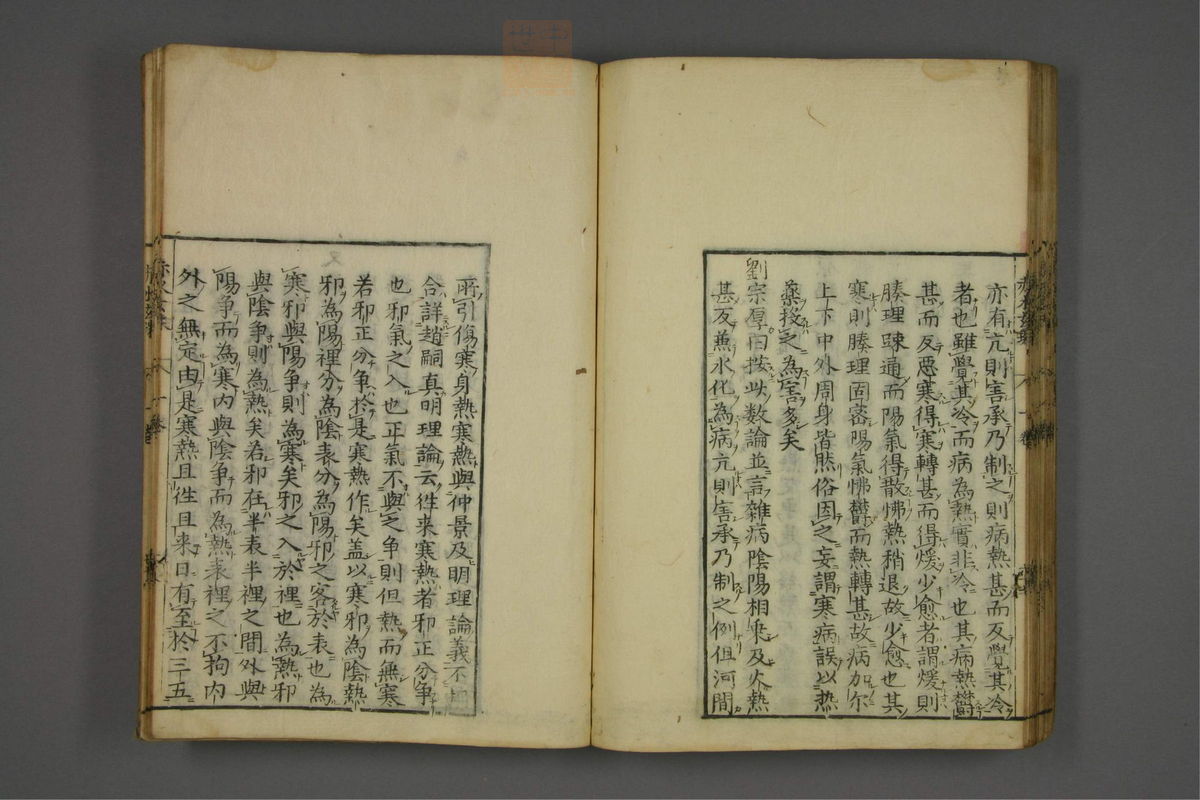 亦有亢則害承乃制之則病熱甚而反覺其冷
者也雖覺其冷而病為熱實非冷也其病熱欝
甚而反惡寒得寒轉甚而得煖少愈者謂煖則
腠理疎通而陽氣得散怫熱稍退故少愈也其
寒則腠理固密陽氣怫欝而熱轉甚故病加尔
上下中外周身皆然俗因之妄謂寒病誤以热
藥投之為害多矣
劉宗厚曰按此数論並言雜病陰陽相乘及火熱
甚反兼水化為病亢則害承乃制之例但河間
所引傷寒身熱寒熱與仲景及明理論義不相
合詳趙嗣真明理論云徃来寒熱者邪正分争
也邪氣之入也正氣不與之争則但熱而無寒
若邪正分争於是寒熱作矣盖以寒邪為陰熱
邪為陽裡分為陰表分為陽邪之客於表也為
寒邪與陽争則為寒矣邪之入於裡也為熱邪
與陰争則為熱矣若邪在半表半裡之間外與
陽争而為寒内與陰争而為熱表裡之不拘内
外之無定由是寒熱且徃且来日有至於三五